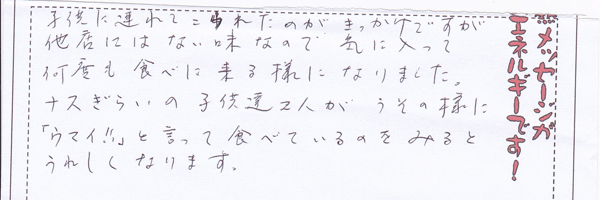 子供に連れてこられたのがきっかけですが
他店にはない味なので 気に入って
何度も食べに来る様になりました。
ナスぎらいの子供達2人がうその様に
「ウマイ!!」と言って食べているのをみると
うれしくなります。
※メッセージが
エネルギーです!